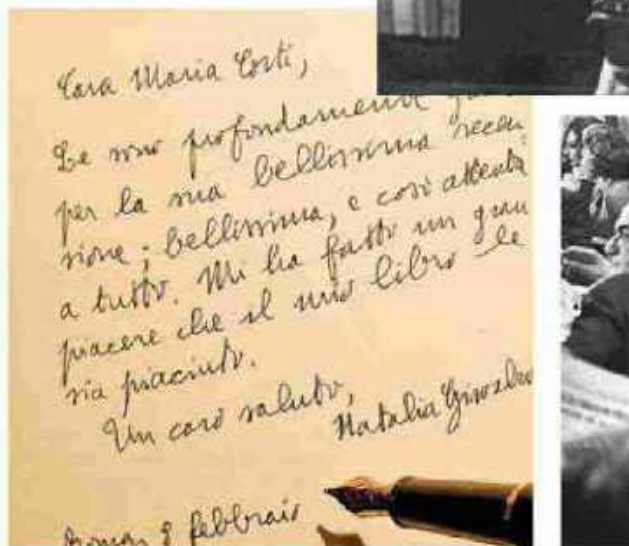 Cara Maria Corti,
Le sono profondamente
per la sua bellissima recen
sione; bellissima, e così attenta
a tutto. Mi ha fatto un gran
piacere che il mio libro le
sia piaciuto.
Un caro saluto,
Natalia
8 febbraio